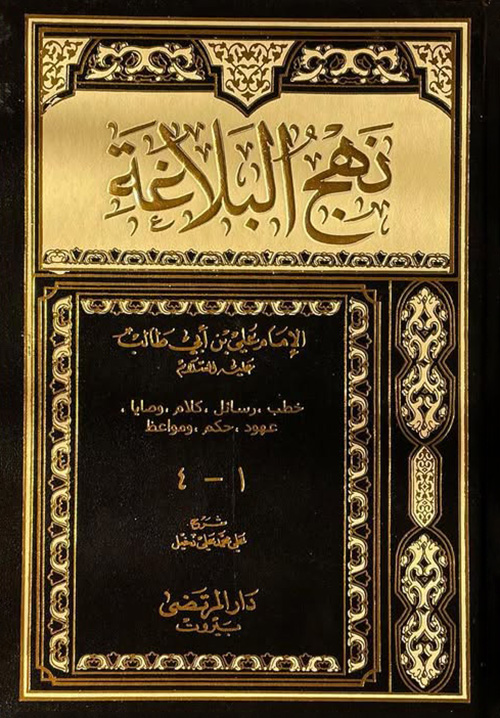 نَهْجُ البَلَاغَةِ
الإمام علي بن أبي طالب
عليه السلام
خطب ، رسائل ، كلام ، وصايا ،
عهود ، حكم ، ومواعظ
١ - ٤
شرح
علي محمد علي دخيل
دار المرتضى
بيروت